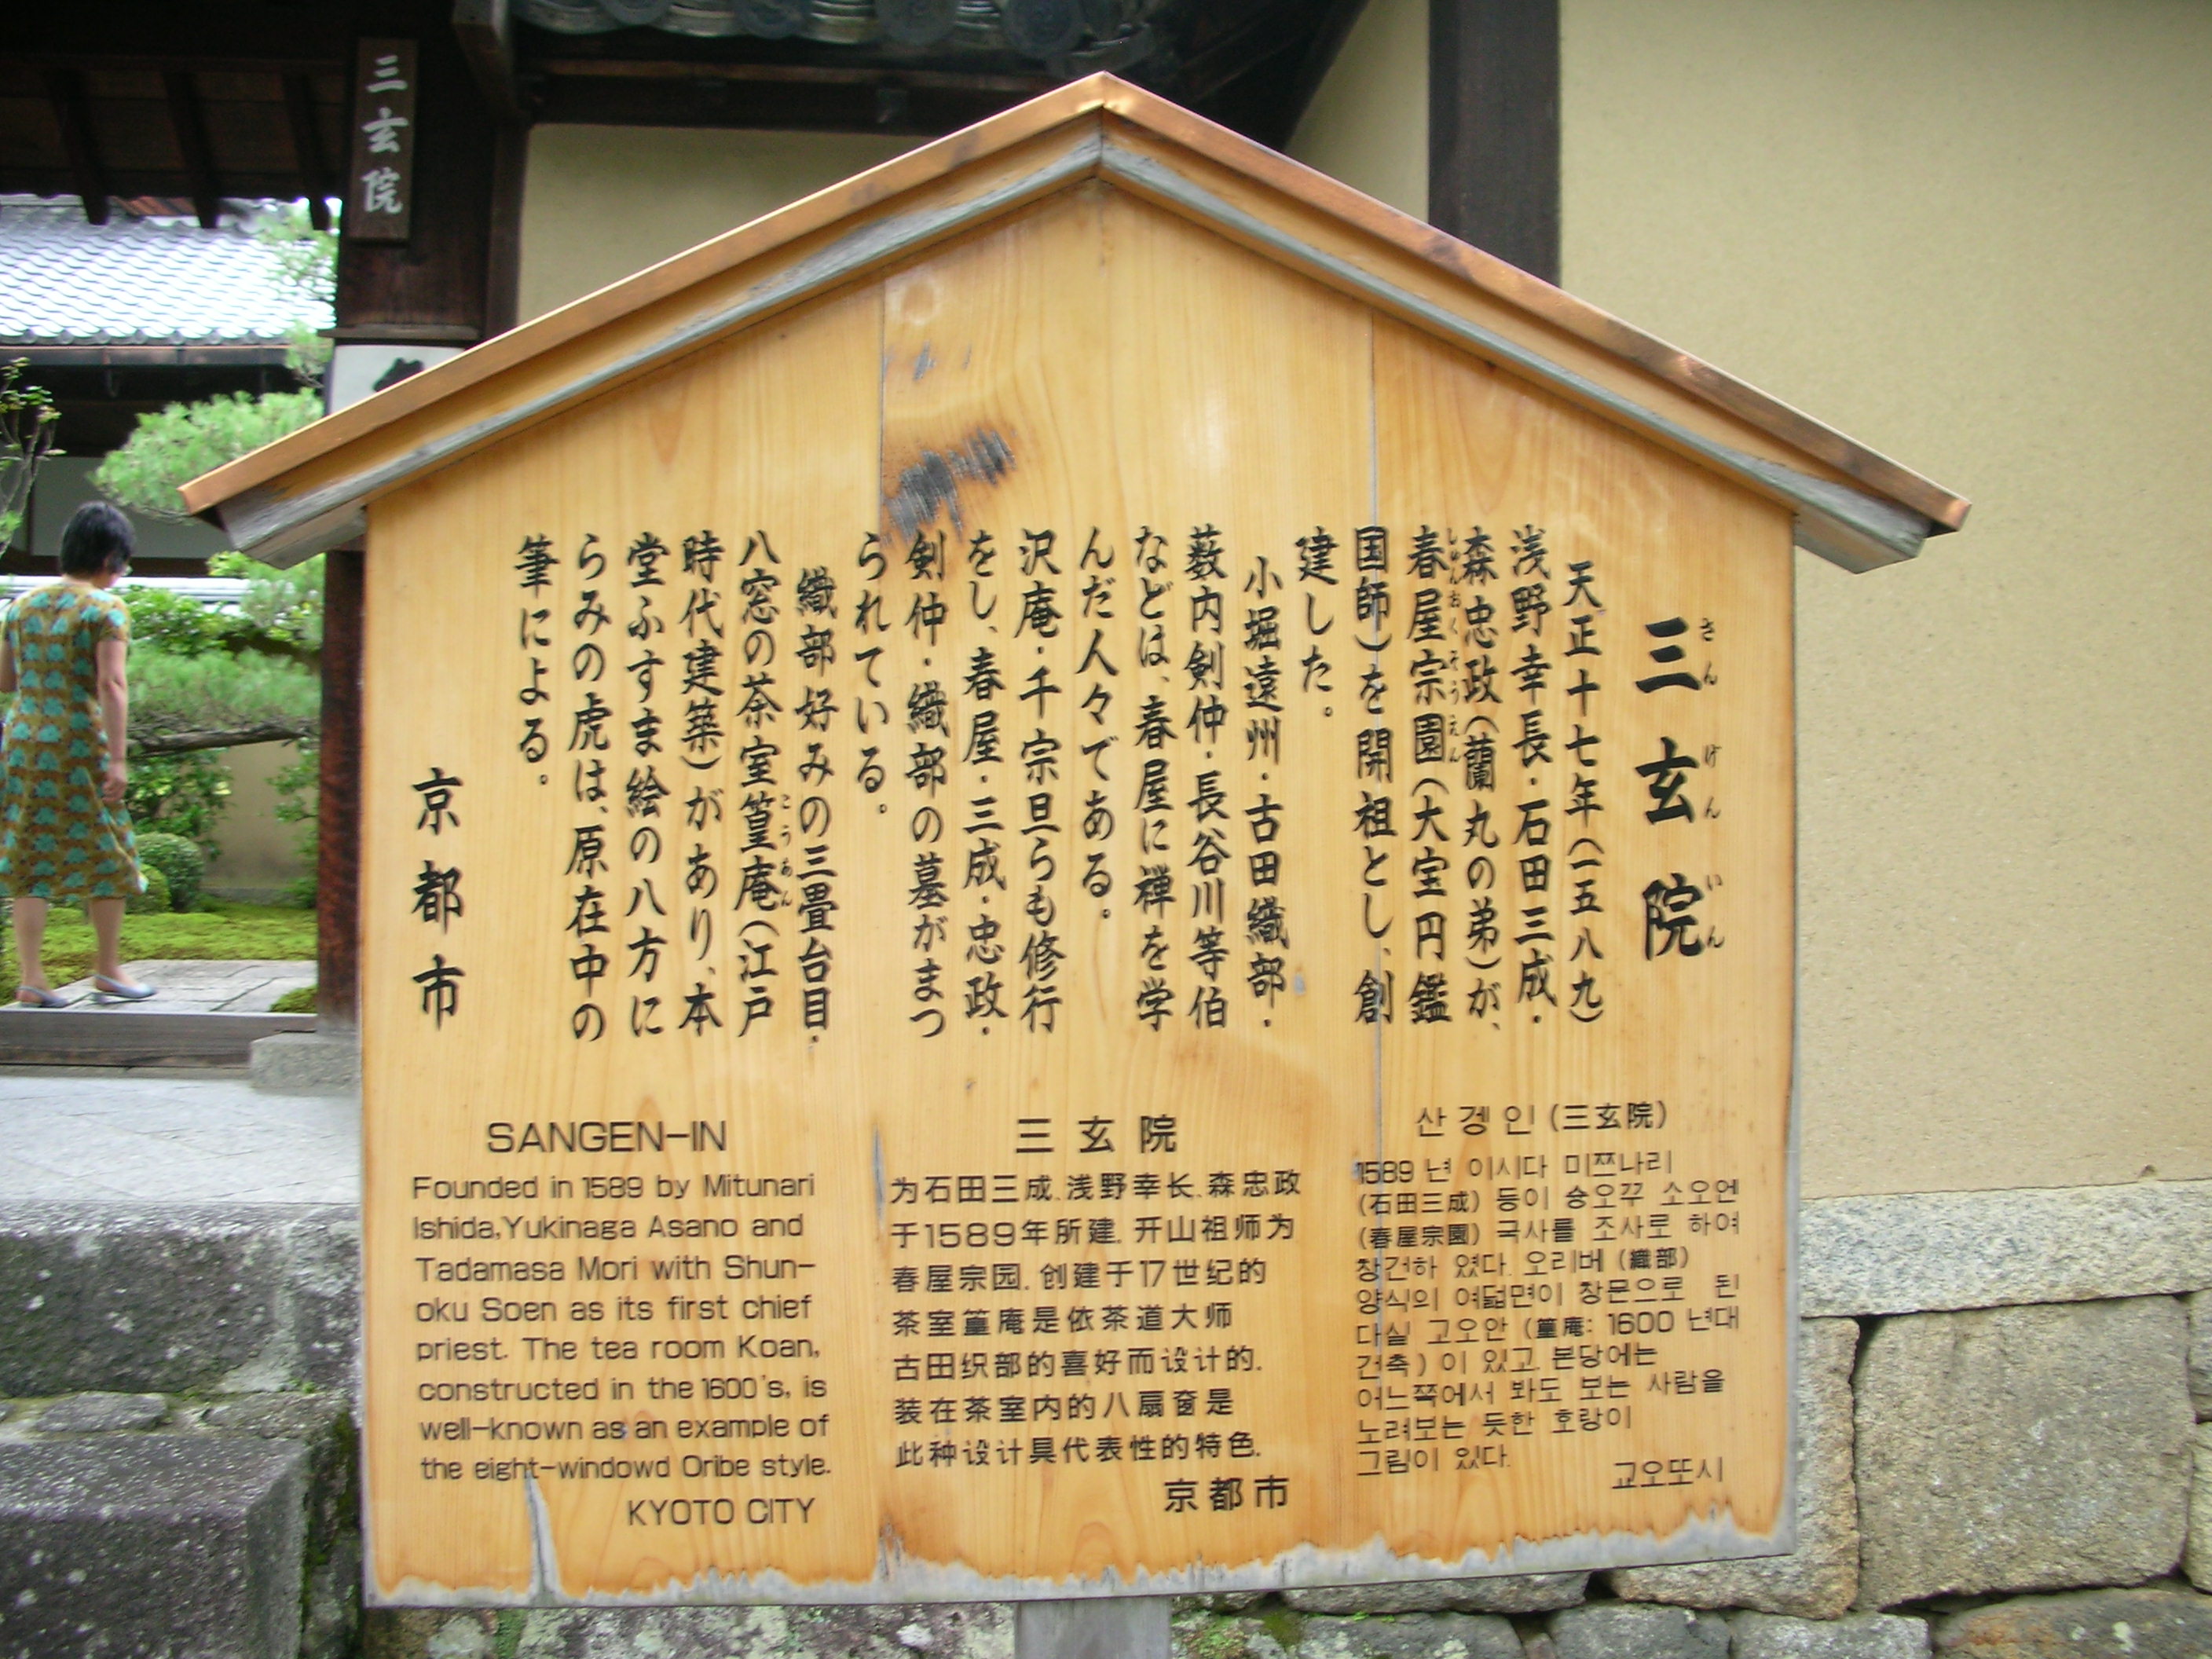 三玄院
三玄院
さんげんいん
天正十七年(一五八九)
浅野幸長・石田三成・
森忠政(蘭丸の弟)が、
春屋宗園(大宝円鑑
しゅんおくそうえん
国師)を開祖とし、創
建した。
小堀遠州・古田織部・
薮内剣仲・長谷川等伯
などは、春屋に禅を学
んだ人々である。
沢庵・千宗旦らも修行
をし、春屋・三成・忠政・
剣仲・織部の墓がまつ
られている。
織部好みの三畳台目・
八窓の茶室篁庵(江戸
こうあん
時代建築)があり、本
堂ふすま絵の八方に
らみの虎は、原在中の
筆による。
京都市
SANGEN-IN
Founded in 1589 by Mitunari
Ishida, Yukinaga Asano and
Tadamasa Mori with Shun-
oku Soen as its first chief
priest. The tea room Koan,
constructed in the 1600's, is
well-known as an example of
the eight-windowd Oribe style.
KYOTO CITY
三玄院
为石田三成.浅野幸长.森忠政
于1589年所建.开山祖师为
春屋宗园.创建于17世纪的
茶室篁庵是依茶道大师
古田织部的喜好而设计的.
装在茶室内的八扇窗是
此种设计具代表性的特色.
京都市
산겡인(三玄院)
1589년 이시다 미쯔나리
(石田三成) 등이 슝오꾸 소오엔
(春屋宗園) 국사를 조사로 하여
창건하 였다. 오리베 (織部)
양식의 여덟면이 창문으로 된
다실 고오안 (篁庵: 1600 년대
건축) 이 있고, 본당에는
어느쪽에서 봐도 보는 사람을
노려보는 듯한 호랑이
그림이 있다.
교오또시